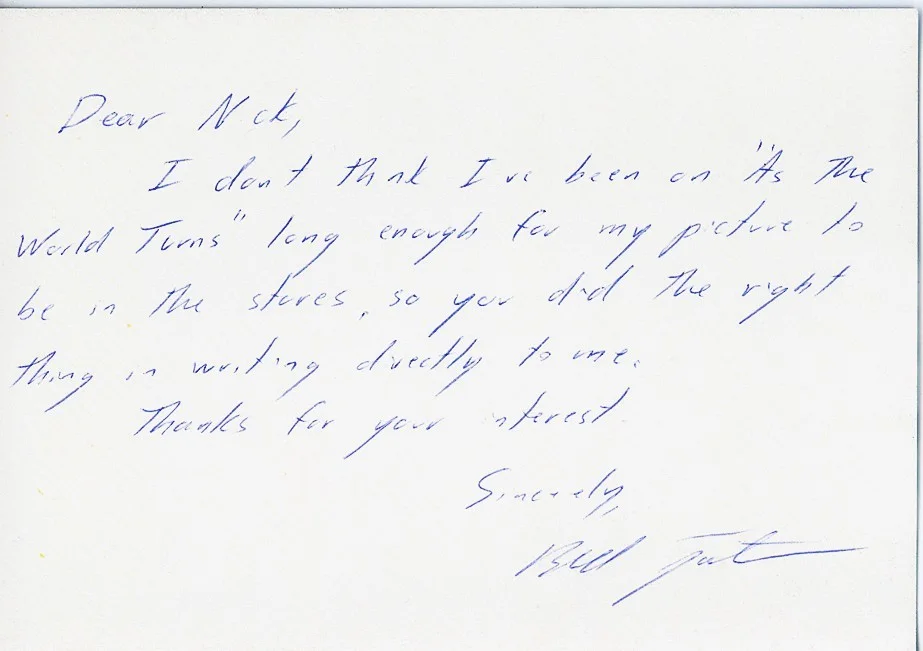 Dear Nick,
I don't think I've been on "As The
World Turns" long enough for my picture to
be in the stores, so you did the right
thing in writing directly to me.
Thanks for your interest.
Sincerely,